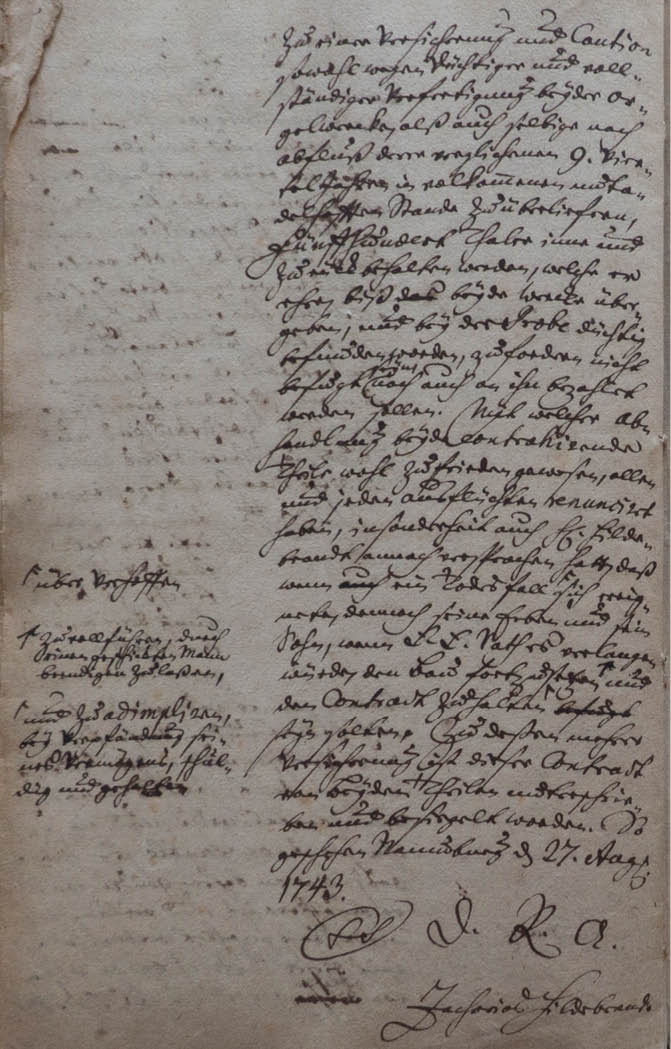 Zu einer Versicherung und Caution
sowohl wegen düchtiger und voll-
ständiger Verfertigung beyder Or-
gelwercke, alß auch selbige nach
abfluß derer verglichenen 9. Vier-
tel Jahren in vollkommenen unta-
delhafften Stande zu überliefern,
Fünffhundert Thaler inne und
zurück behalten werden, welche er
ehe, biß das beyde wercke über-
geben, und bey der Probe düchtig
befunden worden, zu fordern nicht
befugt, noch auch an ihn bezahlet
werden sollen. Mit welcher abh-
handlung beyde contrahirende
Theile wohl zufrieden gewesen, allen
und jeden außflüchten renunciret
haben, insonderheit auch H. Hilde-
brandt annoch versprochen hat, daß
wenn auch ein Todesfall sich ereig-
nete, dennoch seine Erben und sein
Sohn, wenn E. E. Rath es verlangen
würde, den Bau fortzusetzen und
den Contract zu halten befugt
seyn sollen. Zu deßen mehrer
Versicherung ist dieser Contract
von beyden Theilen unterschrie-
ben und besiegelt worden. So
geschehen Naumburg d. 27. Aug.
1743.
D. R. A.
Zacharias Hildebrandt
über Verhoffen
zu vollführen, durch
Seinen geschickten Mann
beendigen zu laßen,
und zu adimpliren,
bey Verpfändung sei-
nes Vermögens, schul-
dig und gehalten